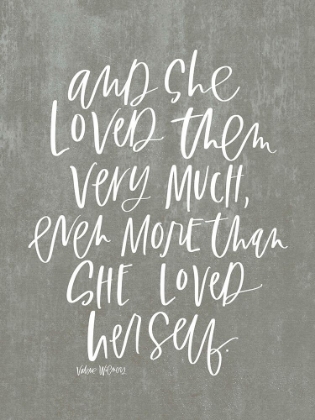 and she
LOVED them
very MUCH,
even MORE than
SHE LOVED
herself.
Valerie Wieners